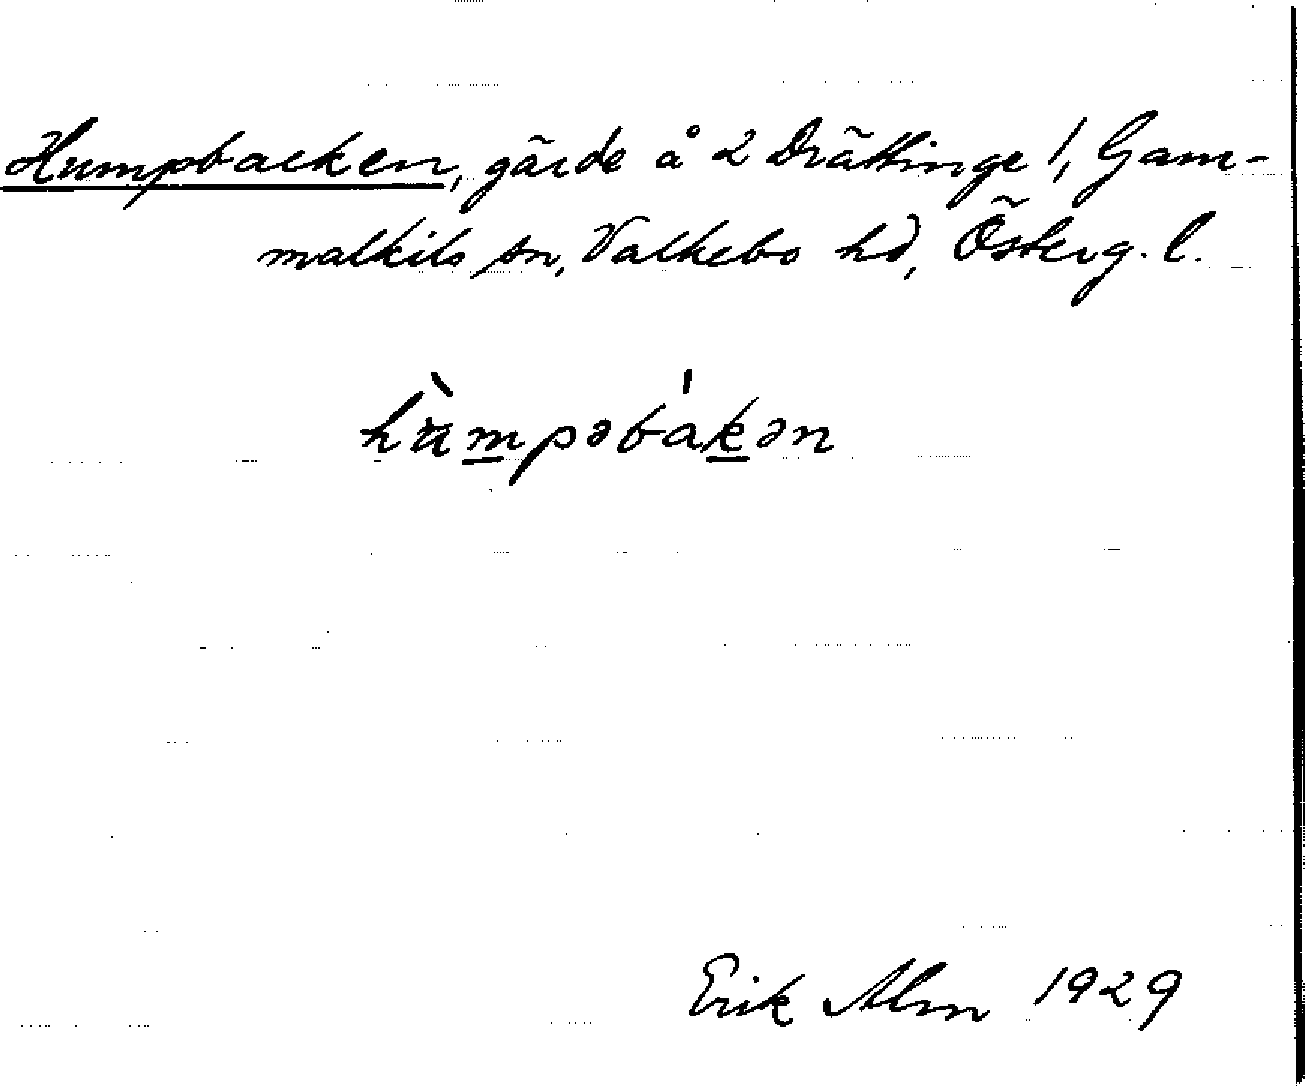 Humpbacken, gärde å 2 Drättinge 1, Gam-
malkils sn, Valkebo hd, Österg. l.
hu̇̀mpəbákən
Erik Alm 1929